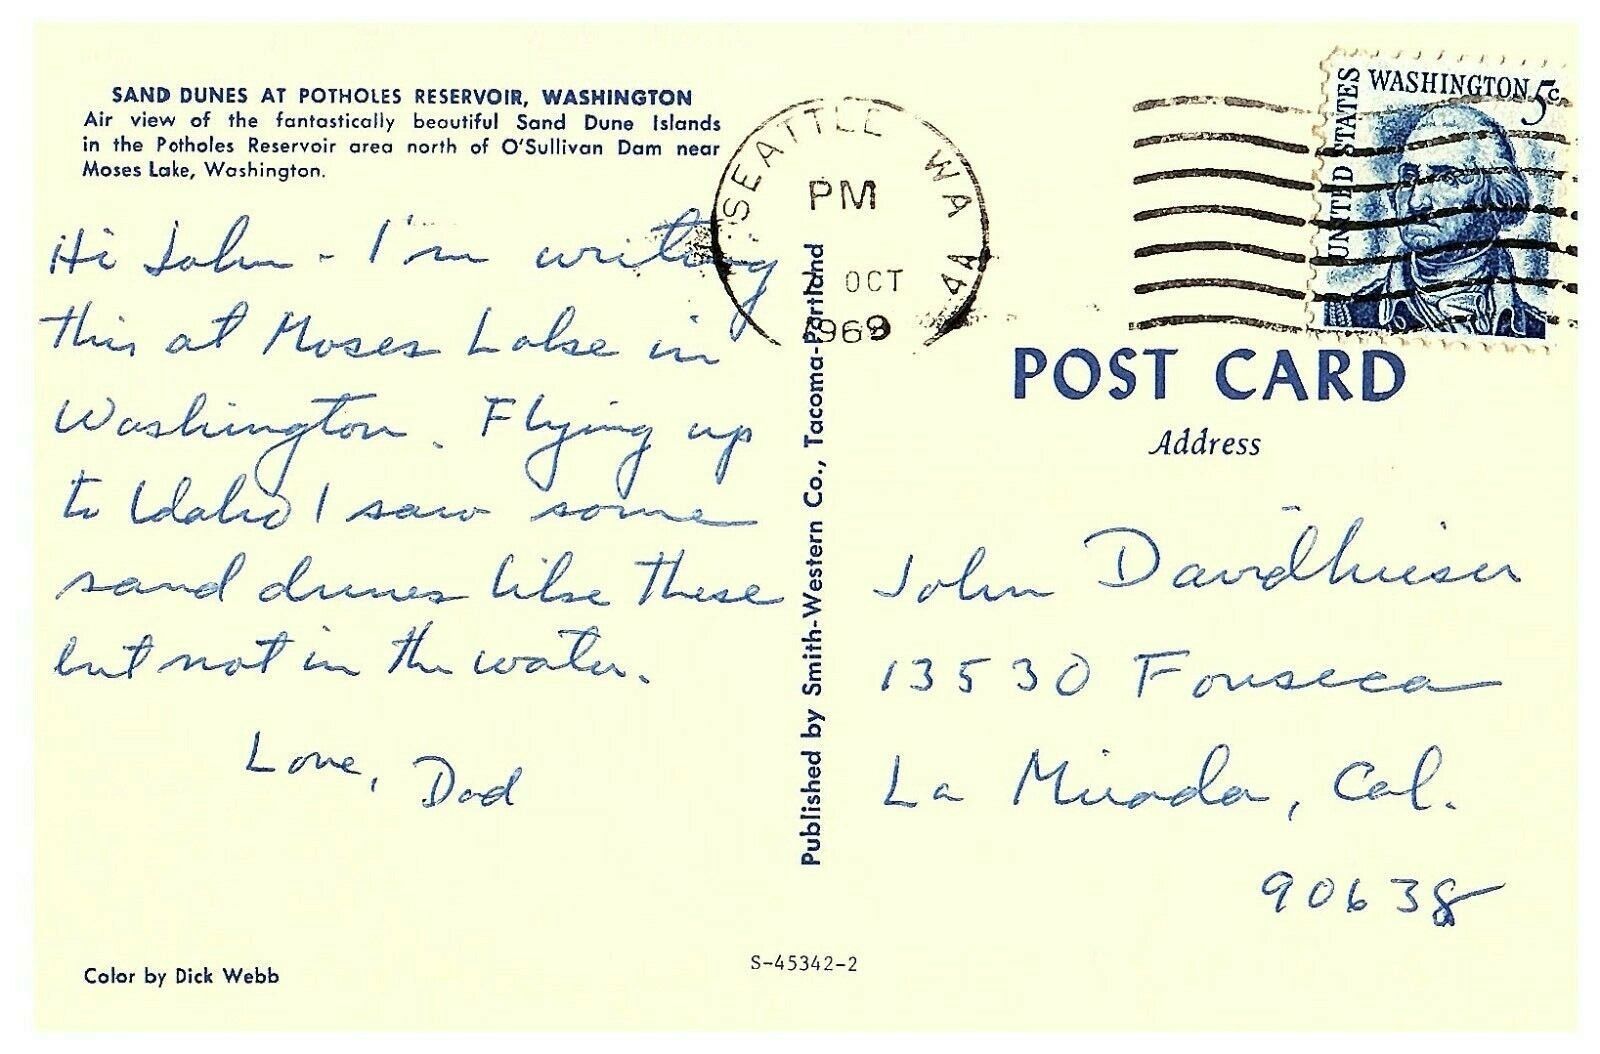 SAND DUNES AT POTHOLES RESERVOIR, WASHINGTON
Air view of the fantastically beautiful Sand Dune Islands
in the Potholes Reservoir area north of O'Sullivan Dam near
Moses Lake, Washington.
Hi John - I'm writing
this at Moses Lake in
Washington. Flying up
to Idaho I saw some
sand dunes like these
but not in the water.
Love, Dad
Color by Dick Webb
Published by Smith-Western Co., Tacoma-Portland
S-45342-2
SEATTLE WA
PM
OCT
1969
UNITED STATES
WASHINGTON 5c
POST CARD
Address
John Davidhieser
13530 Fonseca
La Mirada, Cal.
90638